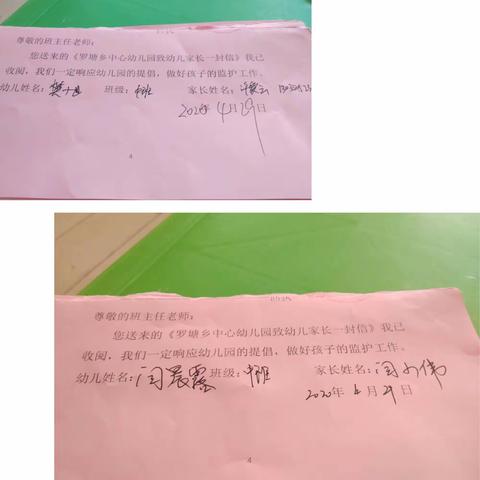 尊敬的班主任老师：
您送来的《罗塘乡中心幼儿园致幼儿家长一封信》我已
收阅，我们一定响应幼儿园的提倡，做好孩子的监护工作。
幼儿姓名： 班级： 家长姓名：
2020年4月29日
4
尊敬的班主任老师：
您送来的《罗塘乡中心幼儿园致幼儿家长一封信》我已
收阅，我们一定响应幼儿园的提倡，做好孩子的监护工作。
幼儿姓名：闫晨露 班级： 家长姓名：闫小伟
2020年4月29日
4